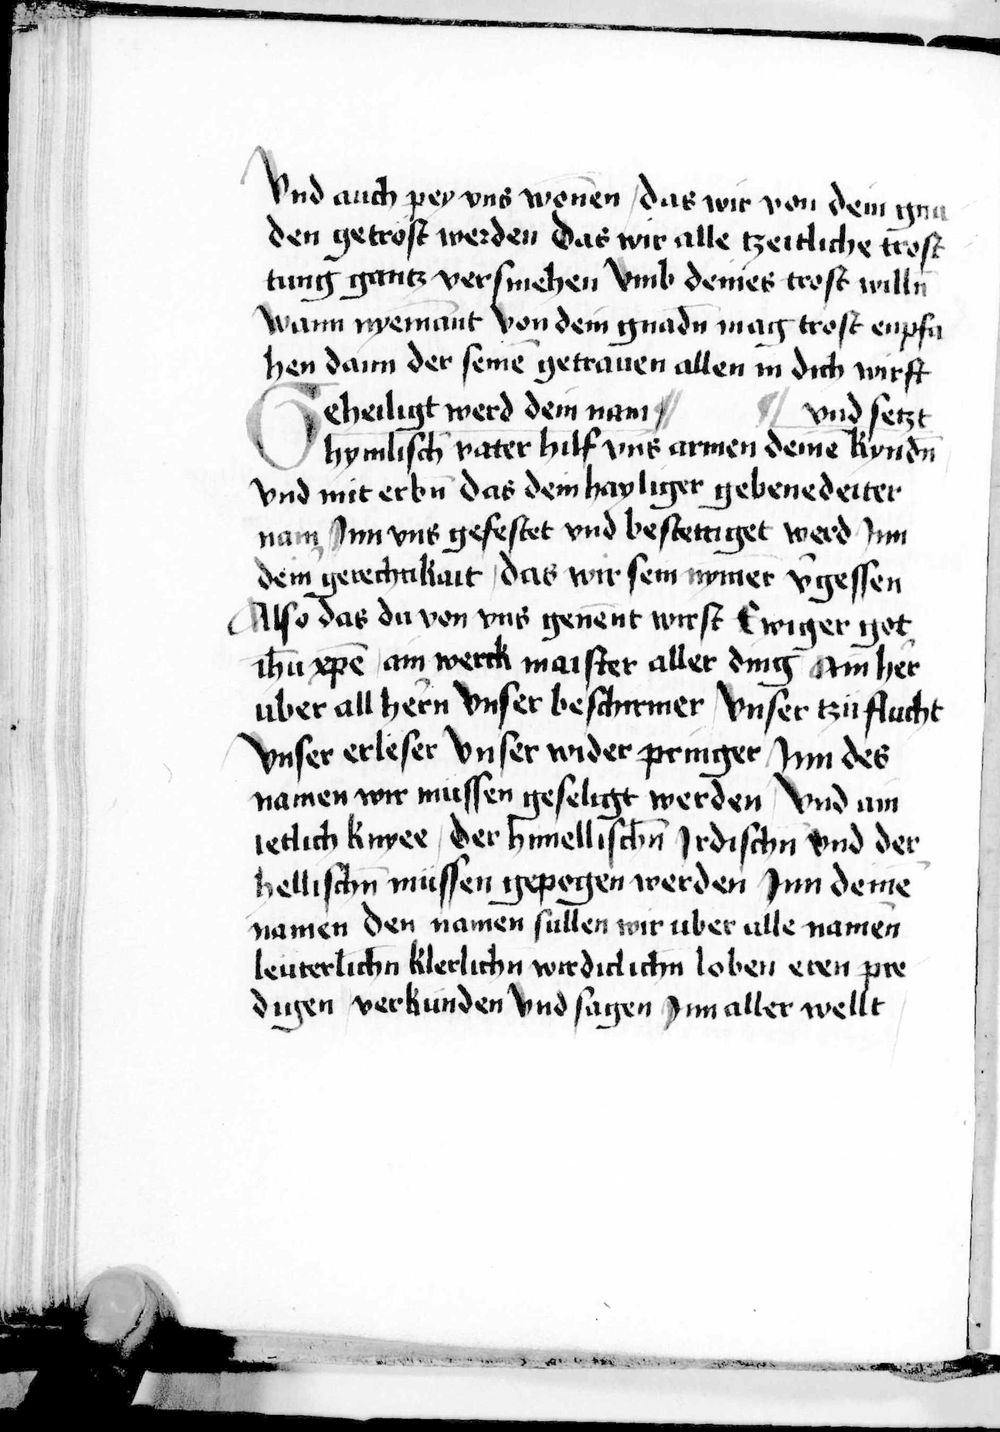 Vnd auch pey vns wonen / das wir von dein gna
den getrost werden Das wir alle tzeitliche trost
tung gantz versmehen Vmb deines trost willn̄
Wann nyemānt von dein gnadn̄ mag trost enpfa
hen dann der seinē getrauen allen in dich wirft
Geheiligt werd dein nam // ¶ vnd setzt
hymlisch vater hilf vns armen deinē kyndn̄
vnd mit erbn̄ das dein hayliger gebenedeiter
nam Jnn vns gefestet vnd bestettiget werd Jnn
dein' gerechtikait / das wir sein nymer v̄gessen
Also das du von vns genent wirst Ewiger got
ih̄u xp̄e / ain werck maister aller ding Ain her
vber all hern Vnser beschirmer / Vnser tzü flucht
Vnser erleser Vnser wider pringer Jnn des
namen wir müssen geseligt werden / Vnd ain
ietlich knyee / der himellischn̄ Jrdischn̄ vnd der
hellischn̄ müssen gepogen werden Jnn deinē
namen Den namen süllen wir vber alle namen
leüterlichn̄ klerlichn̄ wirdiclichn̄ loben eren pre
digen / verkünden Vnd sagen Jnn aller wellt